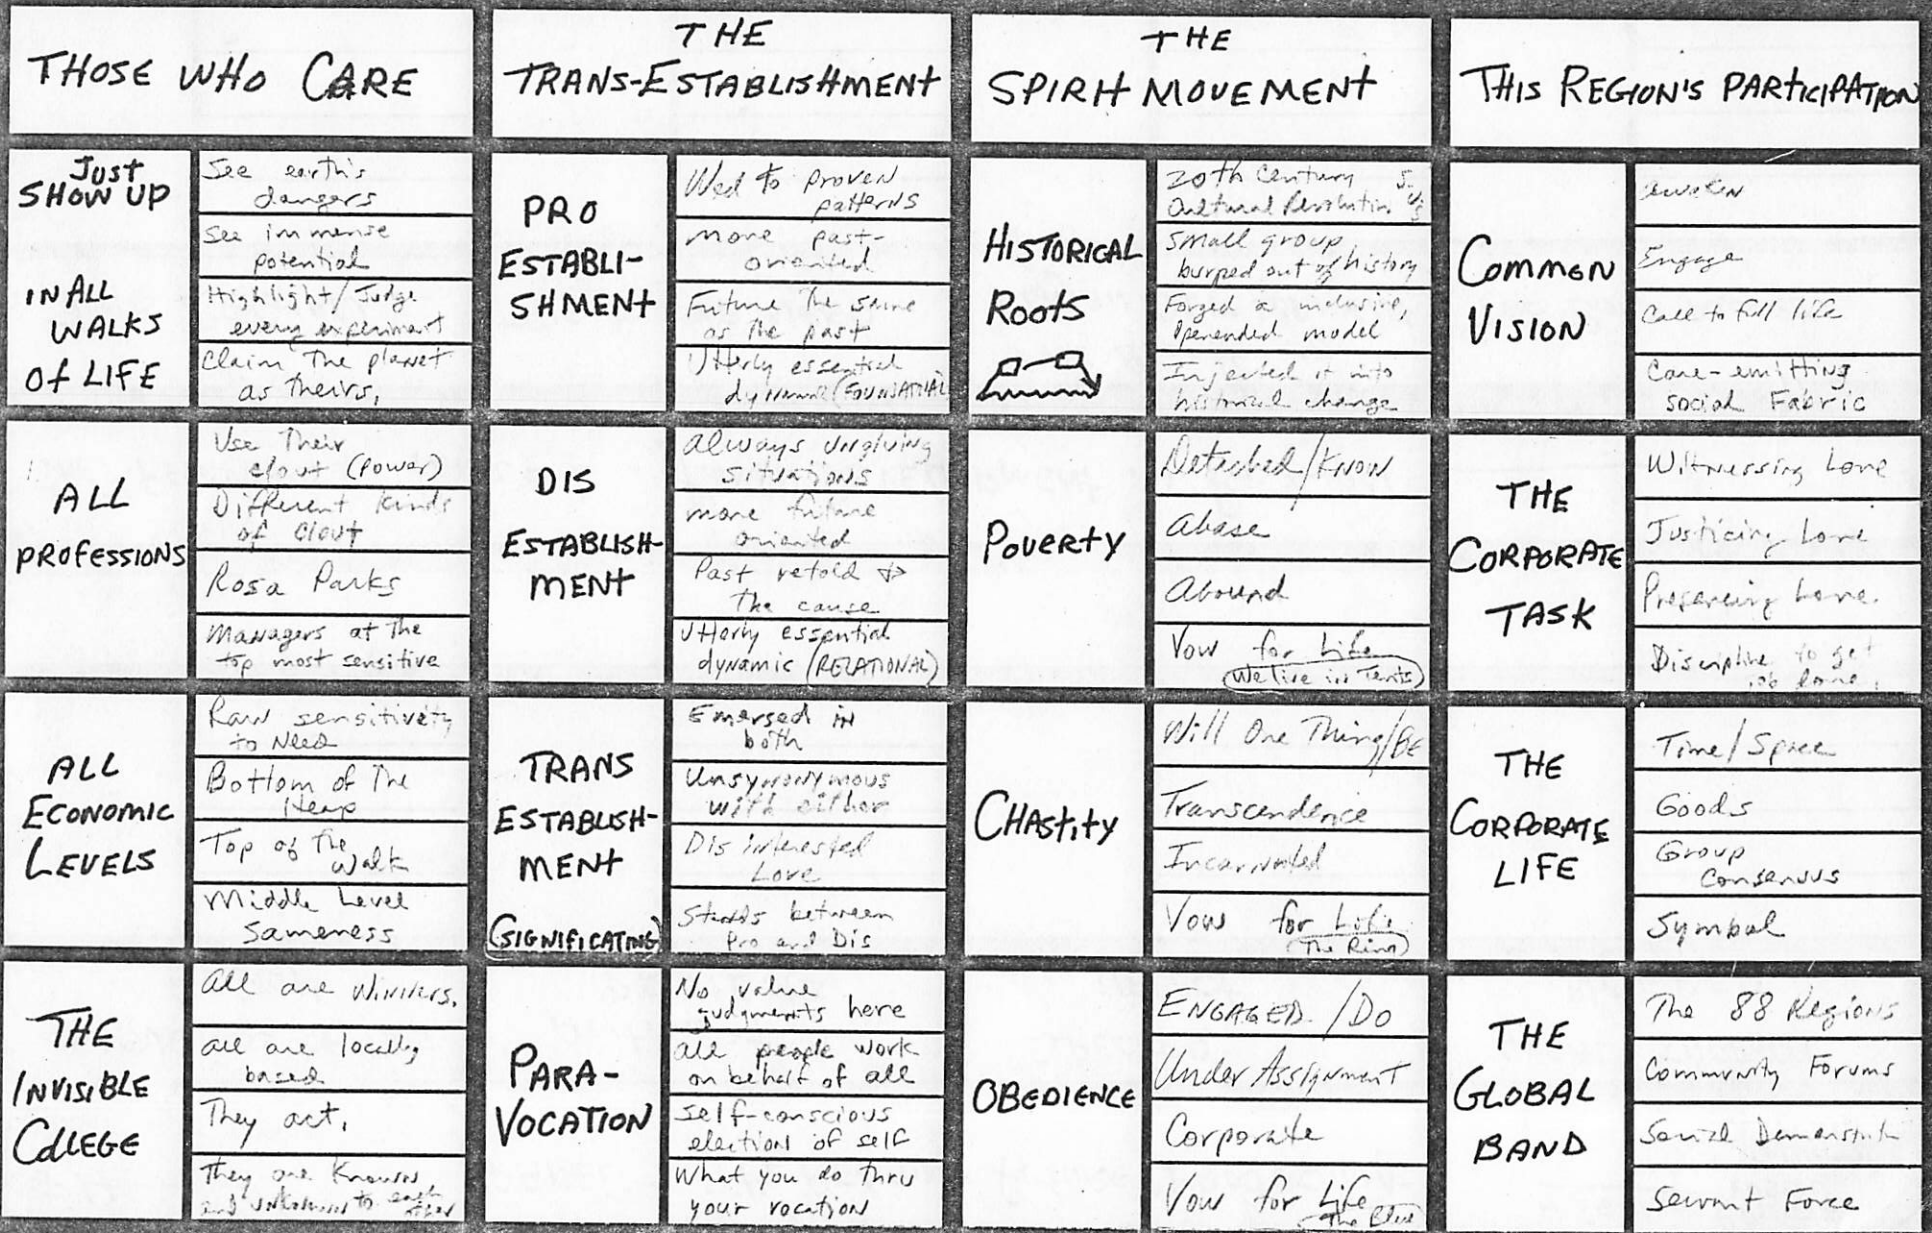 THOSE WHO CARE
JUST
SHOW UP
IN ALL
WALKS
OF LIFE
See earth's
dangers
See immense
potential
Highlight/Judge
every experiment
Claim the planet
as theirs,
ALL
PROFESSIONS
Use their
clout (power)
Different kinds
of clout
Rosa Parks
Managers at the
top most sensitive
ALL
ECONOMIC
LEVELS
Raw sensitivity
to Need
Bottom of the
Heap
Top of the
Walk
Middle Level
Sameness
THE
INVISIBLE
COLLEGE
All are winners.
all are locally
based
They act,
They are known,
and unknown to each
other
THE
TRANS-ESTABLISHMENT
PRO
ESTABLI-
SHMENT
Wed to proven
patterns
more past-
oriented
Future the same
as the past
Utterly essential
dynamic (FOUNDATIAL
DIS
ESTABLISH-
MENT
always ungiving
situations
more future
oriented
Past retold to
the cause
Utterly essential
dynamic (RELATIONAL)
TRANS
ESTABLISH-
MENT
(SIGNIFICATING)
Emersed in
both
Unsynonymous
with either
Disinterested
Love
Stands between
Pro and Dis
PARA-
VOCATION
No value
judgments here
all people work
on behalf of all
self-conscious
election of self
What you do thru
your vocation
THE
SPIRIT MOVEMENT
HISTORICAL
ROOTS
20th Century
Cultural Revolution
small group
burped out of history
Forged a inclusive,
openended model
Injected it into
historical change
POVERTY
Detached/KNOW
abase
Abound
Vow for Life
(We live in Tents)
CHASTITY
Will One Thing/BE
Transcendence
Incarnated
Vow for Life
(The Ring)
OBEDIENCE
ENGAGED /DO
Under Assignment
Corporate
Vow for Life
The Blue
THIS REGION'S PARTICIPATION
COMMON
VISION
awaken
Engage
Call to full life
Care-emitting
social Fabric
THE
CORPORATE
TASK
Witnessing Love
Justicing Love
Presencing Love.
Discipline to get
job done.
THE
CORPORATE
LIFE
Time/Space
Goods
Group
Consensus
Symbol
THE
GLOBAL
BAND
The 88 Regions
Community Forums
Social
Servant Force